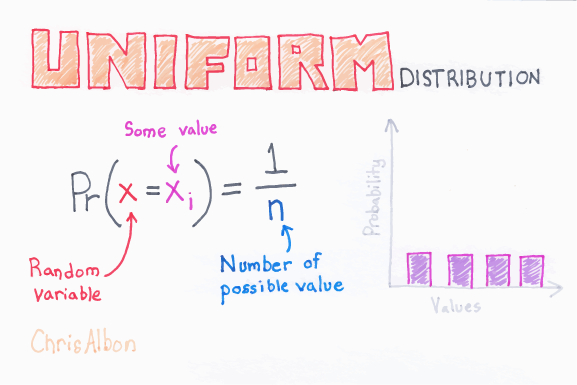 UNIFORM DISTRIBUTION
Some value
Pr(x = xᵢ) = 1/n
Random
variable
Number of
possible value
Probability
Values
ChrisAlbon